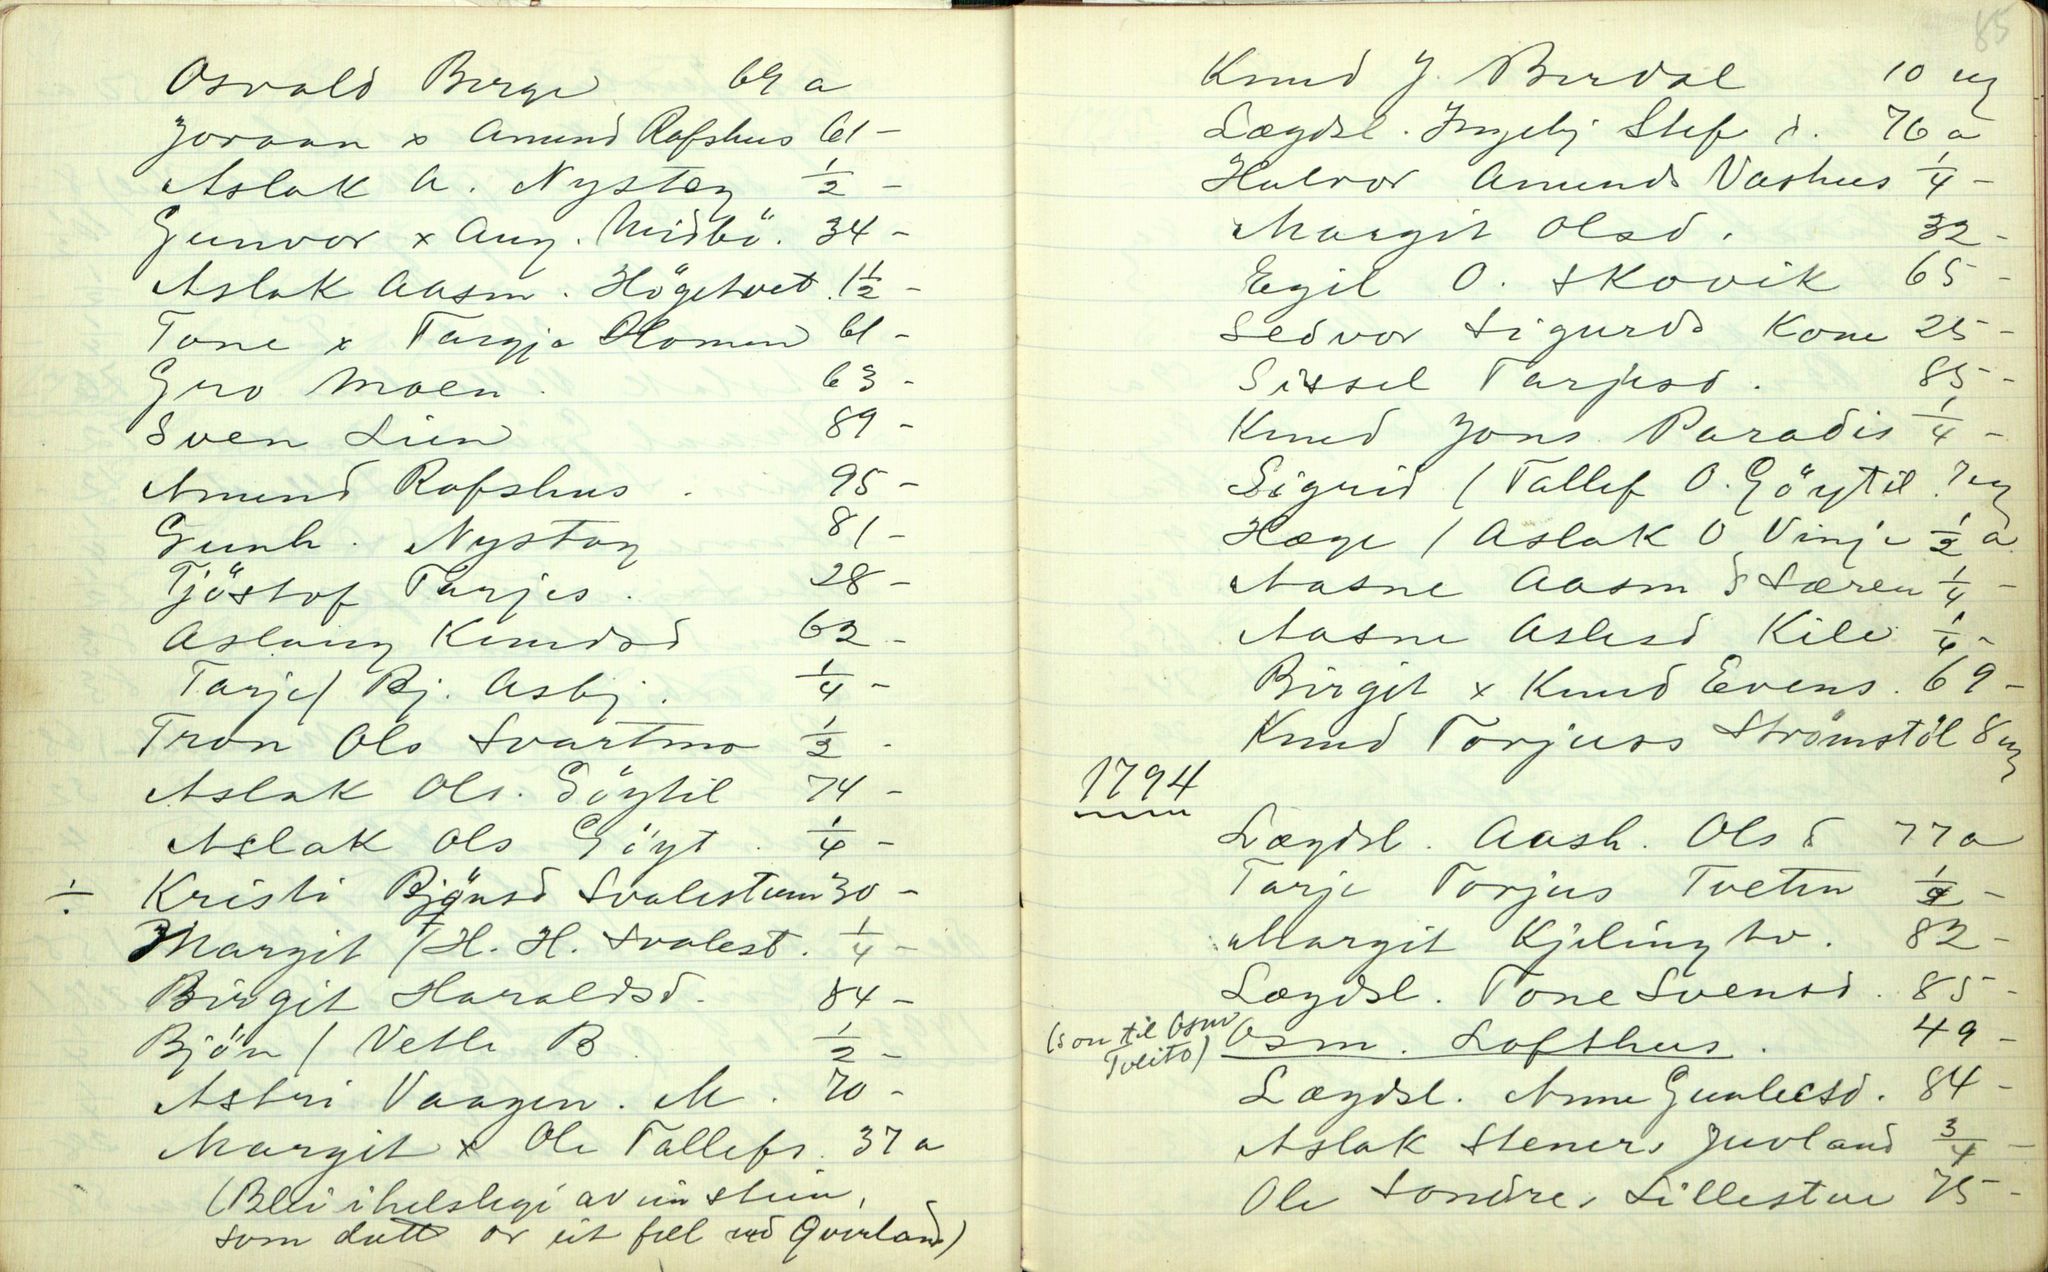 Osvald Berge 69 a
Joraan x Amund Rafshus 61 -
Aslak A. Nystøg 1/2 -
Gunvor x Aug. Midbö. 34 -
Aslak Aasm. Högetveit. 1 1/2 -
Tone x Targje Homen 61 -
Gro Moen. 63 -
Sven Lien 89 -
Amund Rafshus. 95 -
Gunh. Nystøg 81 -
Tjöstof Tarjes. 28 -
Aslaug Knudsd 62 -
Tarje / Bj. Asbj. 1/4 -
Tron Ols Svartmo 1/2 -
Aslak Ols. Göytil 74 -
Aslak Ols Göyt. 1/4 -
÷ Kristi Bjönsd Svalestuen 30 -
Margit / H. H. Svalest. 1/4 -
Birgit Haraldsd. 84 -
Bjön / Vetle B. 1/2 -
Astri Vaagen. M. 70 -
Margit x Ole Tallefs. 37 a
(Blei ihelslegi av ein stein,
som datt or eit fjell ved Qvirland)
85
Knud J. Berdal 10 ug
Lægdsl. Ingebj Stef d. 76 a
Halvor Amunds Vashus 1/4 -
Margit Olsd. 32 -
Egil O. Skovik 65 -
Ledvor Sigurds Kone 25 -
Sissel Tarjesd. 85 -
Knud Jons. Paradis 1/4 -
Sigrid / Tallef O. Göytil. 7 ug
Hæge / Aslak O Vinje 1/2 a
Aasne Aasm d Stæren 1/4 -
Aasne Aslesd Kile 1/4 -
Birgit x Knud Evens. 69 -
Knud Torjuss Strömstöl 8 ug
1794
Lægdsl. Aash. Ols d 77 a
Tarje Torjus Tveten 1/2 -
Margit Kjilingtv. 82 -
Lægdsl. Tone Svensd. 85 -
(son til Osm Tveito) Osm. Lofthus. 49 -
Lægdsl. Anne Gunleksd. 84 -
Aslak Steners Juvland 3/4 -
Ole Sondres Lillestue 75 -